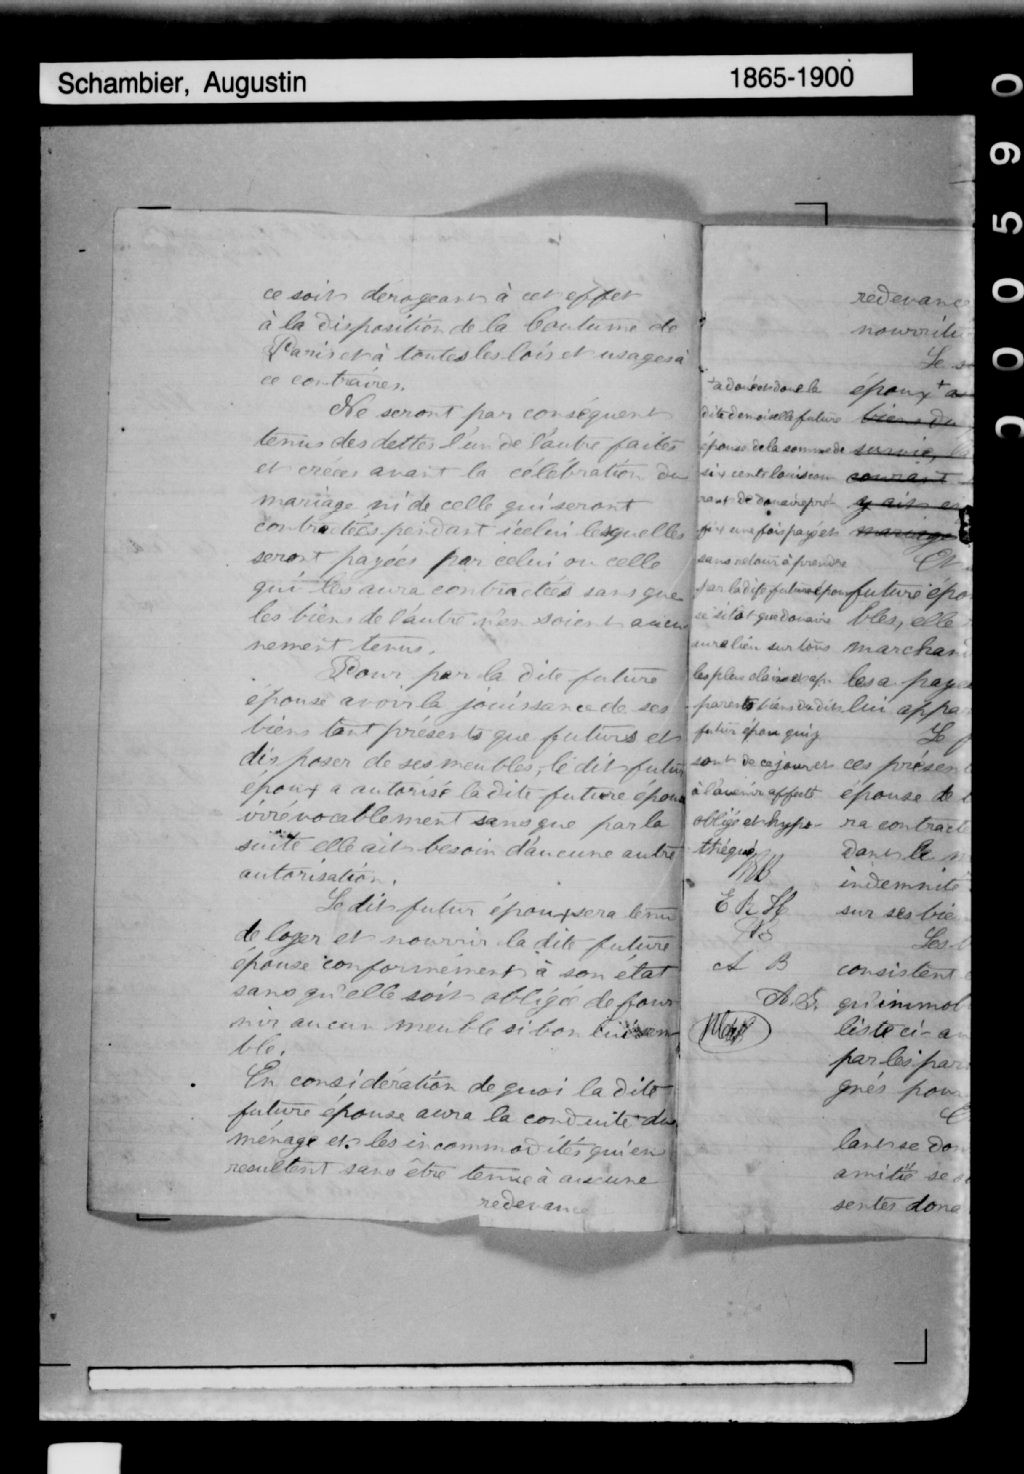 Schambier, Augustin
1865-1900
000590
ce soit dérogeant à cet effet
à la disposition de la Coutume de
Paris et à toutes les lois et usages à
ce contraires.
Ne seront par conséquent
tenus des dettes l'un de l'autre faites
et créées avant la célébration du
mariage ni de celle qui seront
contractées pendant icelui lesquelles
seront payées par celui ou celle
qui les aura contractées sans que
les biens de l'autre n'en soient aucu
nement tenus.
Pour par la dite future
épouse avoir la jouissance de ses
biens tant présents que futurs et
disposer de ses meubles, le dit futur
époux a autorisé la dite future épouse
irrévocablement sans que par la
suite elle ait besoin d'aucune autre
autorisation.
Le dit futur époux sera tenu
de loger et nourrir la dite future
épouse conformément à son état
sans qu'elle soit obligée de four
nir aucun meuble si bon lui sem
ble.
En considération de quoi la dite
future épouse aura la conduite du
ménage et les incommodités qui en
resultent sans être tenue à aucune
redevance
+ a doué et doue la
dite demoiselle future
épouse de la somme de
six cents louis cou
rant de douaire pré
fix une fois payé et
sans retour à prendre
par la dite future épouse
sitôt que douaire
aura lieu sur tous
les plus clairs et ap
parents biens du dit
futur époux qui y
sont de ce jour et
à l'avenir affecté
obligé et hypo-
théqué
E R H
A B
A. L.
redevance
nourritu
Le
époux + a
biens du
survie, la
courant
y ait en
mariage
Et
future épo
bles, elle
marchan
les a payé
lui appar
Le f
ces présent
épouse de
ra contracté
dans le
indemnité
sur ses bie
Les
consistent
qu'immob
liste ci-an
par les par
gnés pour
lant se don
amitié se
sentes dona